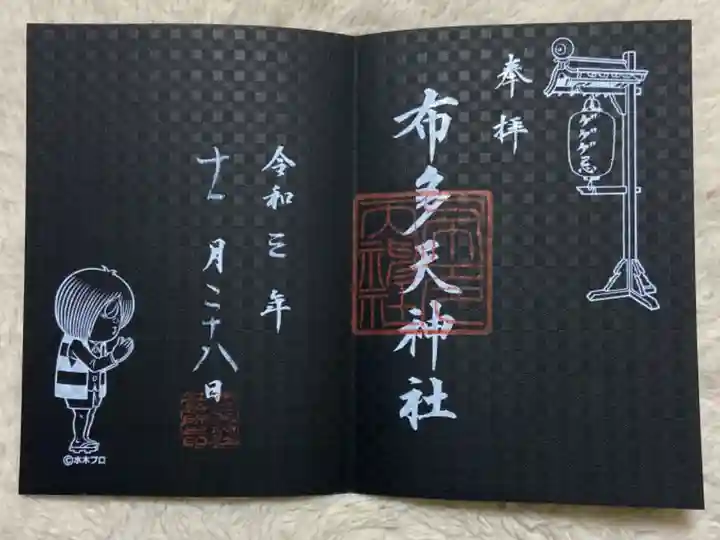 奉拝
ゲゲゲ忌
布多天神社
令和三年
十一月二十八日
©水木プロ